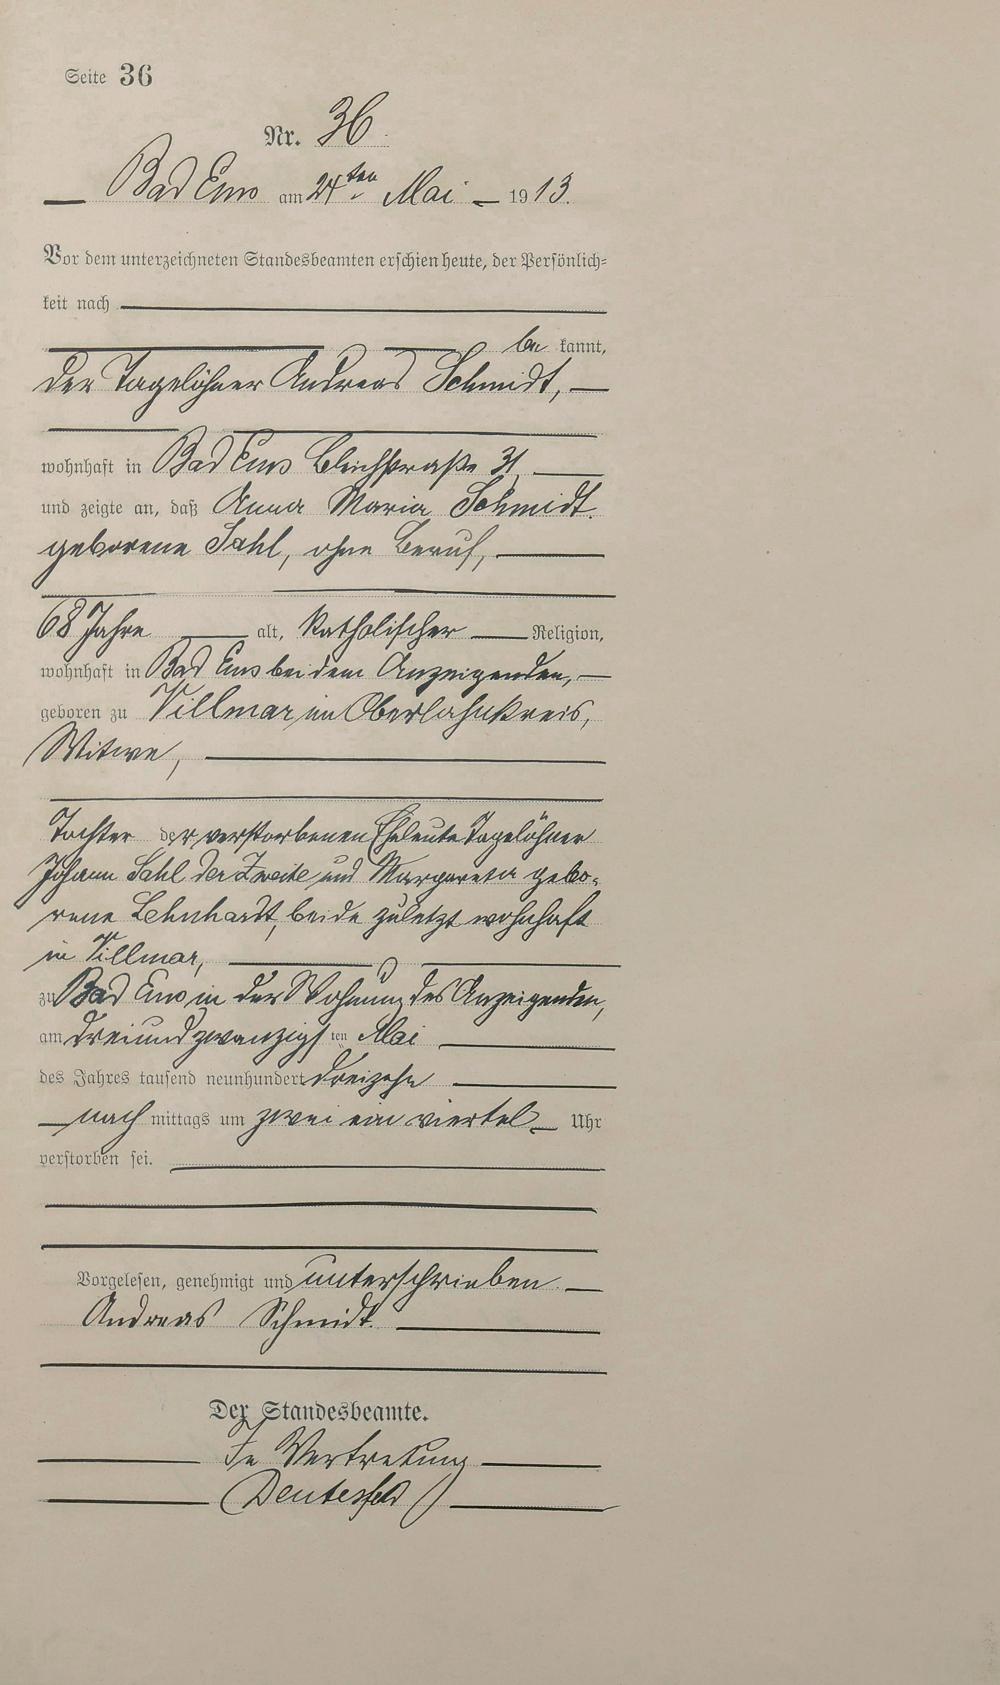 Seite 36
Nr. 36
Bad Ems am 24ten Mai 1913.
Vor dem unterzeichneten Standesbeamten erschien heute, der Persönlich=
keit nach
be kannt,
der Tagelöhner Andreas Schmidt,
wohnhaft in Bad Ems Bleichstraße 31
und zeigte an, daß Anna Maria Schmidt
geborene Sahl, ohne Beruf,
68 Jahre alt, katholischer Religion,
wohnhaft in Bad Ems bei dem Anzeigenden,
geboren zu Villmar im Oberlahnkreis,
Witwe,
Tochter der verstorbenen Eheleute Tagelöhner
Johann Sahl der Zweite und Margareta gebo-
rene Lehnhardt, beide zuletzt wohnhaft
in Villmar,
zu Bad Ems in der Wohnung des Anzeigenden,
am dreiundzwanzigsten Mai
des Jahres tausend neunhundert dreizehn
nach mittags um zwei ein viertel Uhr
verstorben sei.
Vorgelesen, genehmigt und unterschrieben.
Andreas Schmidt.
Der Standesbeamte.
In Vertretung